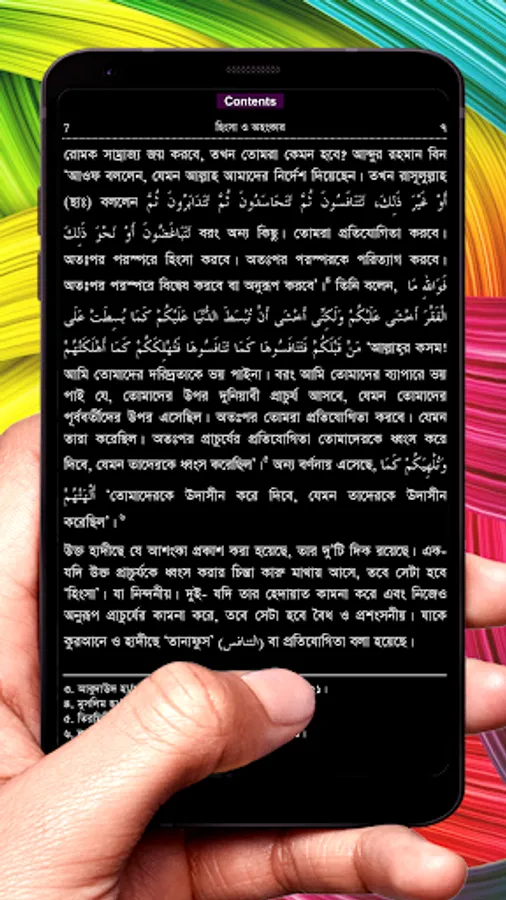 Contents
7 হিংসা ও অহংকার ৭
রোমক সাম্রাজ্য জয় করবে, তখন তোমরা কেমন হবে? আব্দুর রহমান বিন
‘আওফ বললেন, যেমন আল্লাহ আমাদের নির্দেশ দিয়েছেন। তখন রাসূলুল্লাহ
(ছাঃ) বললেন أَوْ غَيْرَ ذَلِكَ، تَتَنَافَسُونَ ثُمَّ تَتَحَاسَدُونَ ثُمَّ تَتَدَابَرُونَ ثُمَّ
تَتَبَاغَضُونَ أَوْ نَحْوَ ذَلِكَ বরং অন্য কিছু। তোমরা প্রতিযোগিতা করবে।
অতঃপর পরস্পরে হিংসা করবে। অতঃপর পরস্পরকে পরিত্যাগ করবে।
অতঃপর পরস্পরে বিদ্বেষ করবে বা অনুরূপ করবে’।⁴ তিনি বলেন, فَوَاللهِ مَا
الْفَقْرَ أَخْشَى عَلَيْكُمْ وَلَكِنِّى أَخْشَى أَنْ تُبْسَطَ الدُّنْيَا عَلَيْكُمْ كَمَا بُسِطَتْ عَلَى
مَنْ قَبْلَكُمْ فَتَنَافَسُوهَا كَمَا تَنَافَسُوهَا فَتُهْلِكَكُمْ كَمَا أَهْلَكَتْهُمْ ‘আল্লাহর কসম!
আমি তোমাদের দরিদ্রতাকে ভয় পাইনা। বরং আমি তোমাদের ব্যাপারে ভয়
পাই যে, তোমাদের উপর দুনিয়াবী প্রাচুর্য আসবে, যেমন তোমাদের
পূর্ববর্তীদের উপর এসেছিল। অতঃপর তোমরা প্রতিযোগিতা করবে। যেমন
তারা করেছিল। অতঃপর প্রাচুর্যের প্রতিযোগিতা তোমাদেরকে ধ্বংস করে
দিবে, যেমন তাদেরকে ধ্বংস করেছিল’।⁵ অন্য বর্ণনায় এসেছে, وَتُلْهِيَكُمْ كَمَا
أَلْهَتْهُمْ ‘তোমাদেরকে উদাসীন করে দিবে, যেমন তাদেরকে উদাসীন
করেছিল’।⁶
উক্ত হাদীছে যে আশংকা প্রকাশ করা হয়েছে, তার দু’টি দিক রয়েছে। এক-
যদি উক্ত প্রাচুর্যকে ধ্বংস করার চিন্তা কারু মাথায় আসে, তবে সেটা হবে
‘হিংসা’। যা নিন্দনীয়। দুই- যদি তার হেদায়াত কামনা করে এবং নিজেও
অনুরূপ প্রাচুর্যের কামনা করে, তবে সেটা হবে বৈধ ও প্রশংসনীয়। যাকে
কুরআনে ও হাদীছে ‘তানাফুস’ (التنافس) বা প্রতিযোগিতা বলা হয়েছে।
৩. আবুদাউদ
৪. মুসলিম
৫.
৬.